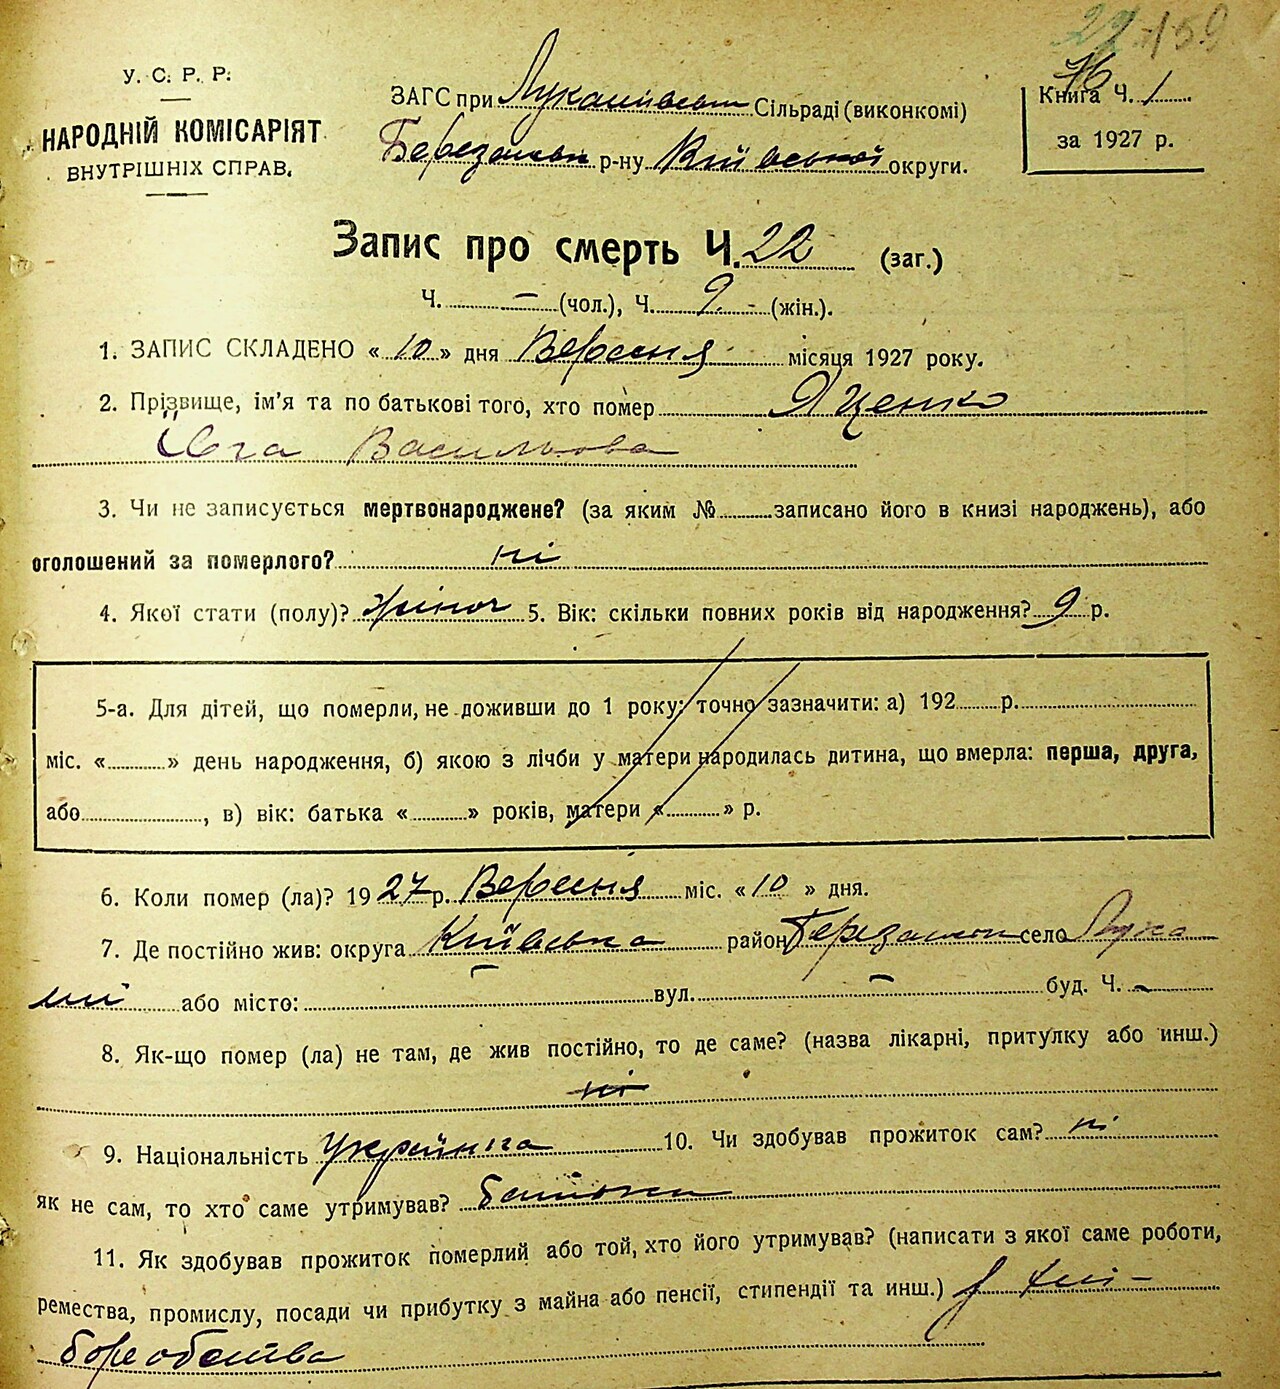 22 159
У. С. Р. Р.
НАРОДНІЙ КОМІСАРІЯТ
ВНУТРІШНІХ СПРАВ.
ЗАГС при Лукашівськ Сільраді (виконкомі)
Березанськ р-ну Київської округи.
76
Книга Ч. 1
за 1927 р.
Запис про смерть Ч. 22 (заг.)
Ч. – (чол.), Ч. 9 (жін.).
1. ЗАПИС СКЛАДЕНО « 10 » дня Вересня місяця 1927 року.
2. Прізвище, ім'я та по батькові того, хто помер Яценко
Ївга Васильова
3. Чи не записується мертвонароджене? (за яким № записано його в книзі народжень), або
оголошений за померлого? ні
4. Якої стати (полу)? жіноч 5. Вік: скільки повних років від народження? 9 р.
5-а. Для дітей, що померли, не доживши до 1 року: точно зазначити: а) 192 р.
міс. « » день народження, б) якою з лічби у матери народилась дитина, що вмерла: перша, друга,
або , в) вік: батька « » років, матери « » р.
6. Коли помер (ла)? 1927 р. Вересня міс. « 10 » дня.
7. Де постійно жив: округа Київська район Березанськ село Лука
ші або місто: – вул. – буд. Ч. –
8. Як-що помер (ла) не там, де жив постійно, то де саме? (назва лікарні, притулку або инш.)
ні
9. Національність Українка 10. Чи здобував прожиток сам? ні
як не сам, то хто саме утримував? батьки
11. Як здобував прожиток померлий або той, хто його утримував? (написати з якої саме роботи,
ремества, промислу, посади чи прибутку з майна або пенсії, стипендії та инш.) з хлі-
боробства